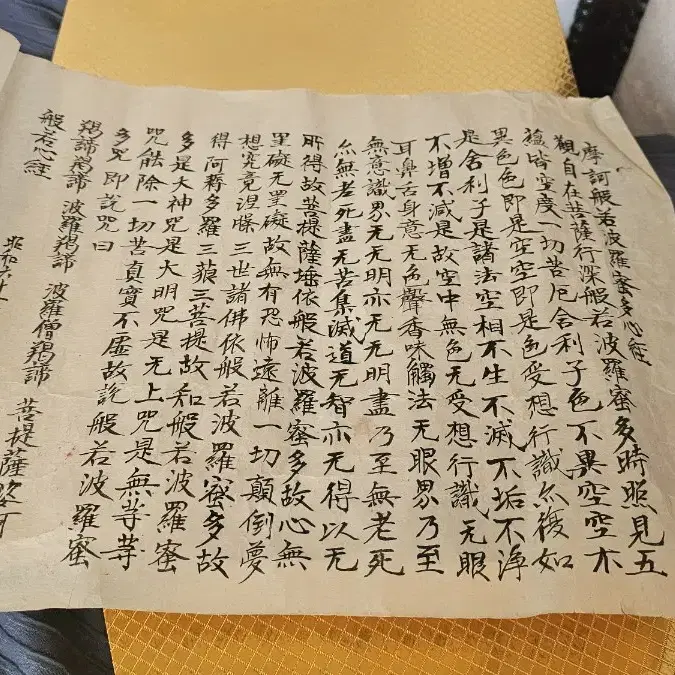 摩訶般若波羅蜜多心経
觀自在菩薩行深般若波羅蜜多時照見五
蘊皆空度一切苦厄舍利子色不異空空不
異色色即是空空即是色受想行識亦復如
是舍利子是諸法空相不生不滅不垢不浄
不增不減是故空中無色无受想行識无眼
耳鼻舌身意无色聲香味觸法无眼界乃至
無意識界无无明亦无无明盡乃至無老死
亦無老死盡无苦集滅道无智亦无得以无
所得故菩提薩埵依般若波羅蜜多故心無
罣礙无罣礙故無有恐怖遠離一切顛倒夢
想究竟涅槃三世諸佛依般若波羅蜜多故
得阿耨多羅三藐三菩提故知般若波羅蜜
多是大神咒是大明咒是无上咒是無等等
咒能除一切苦真實不虛故說般若波羅蜜
多咒即說咒曰
羯諦羯諦 波羅羯諦 波羅僧羯諦 菩提薩婆訶
般若心経
昭和六十